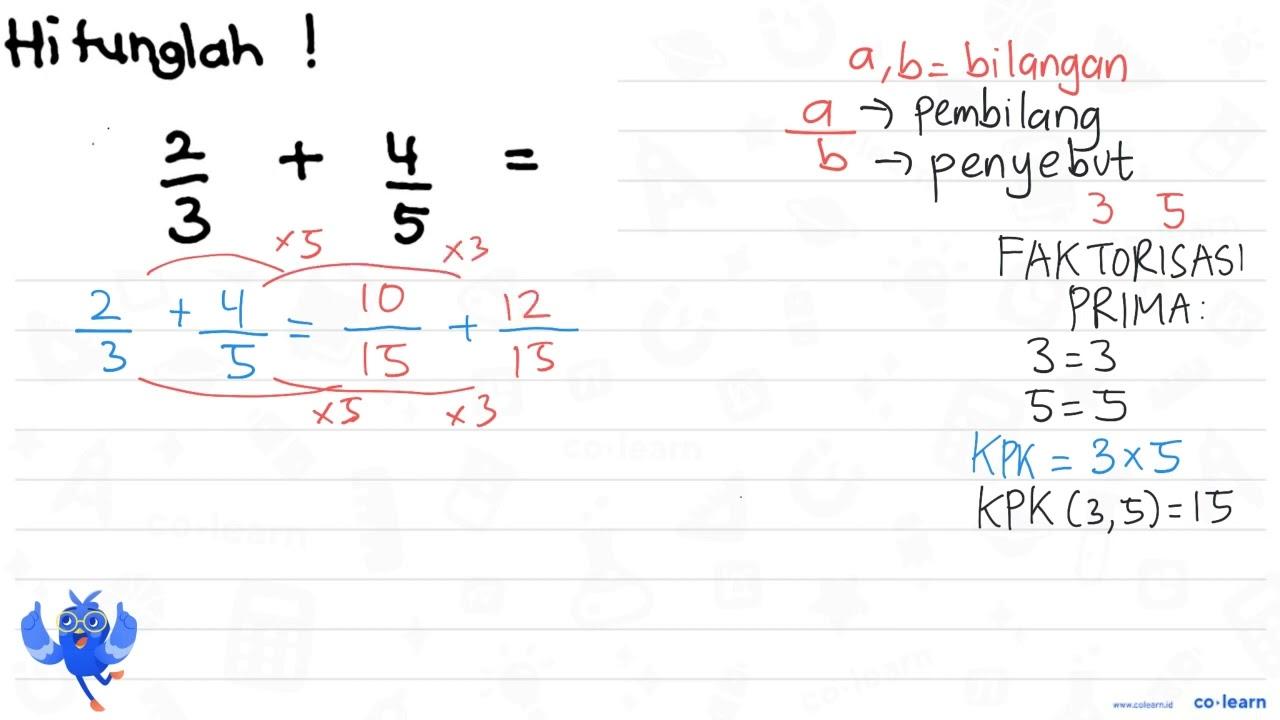 Hitunglah !
2/3 + 4/5 =
×5 ×3
2/3 + 4/5 = 10/15 + 12/15
×5 ×3
a, b = bilangan
a → pembilang
b → penyebut
3 5
FAKTORISASI
PRIMA:
3 = 3
5 = 5
KPK = 3 × 5
KPK (3, 5) = 15
co·learn
co·learn
co·learn
www.colearn.id co·learn